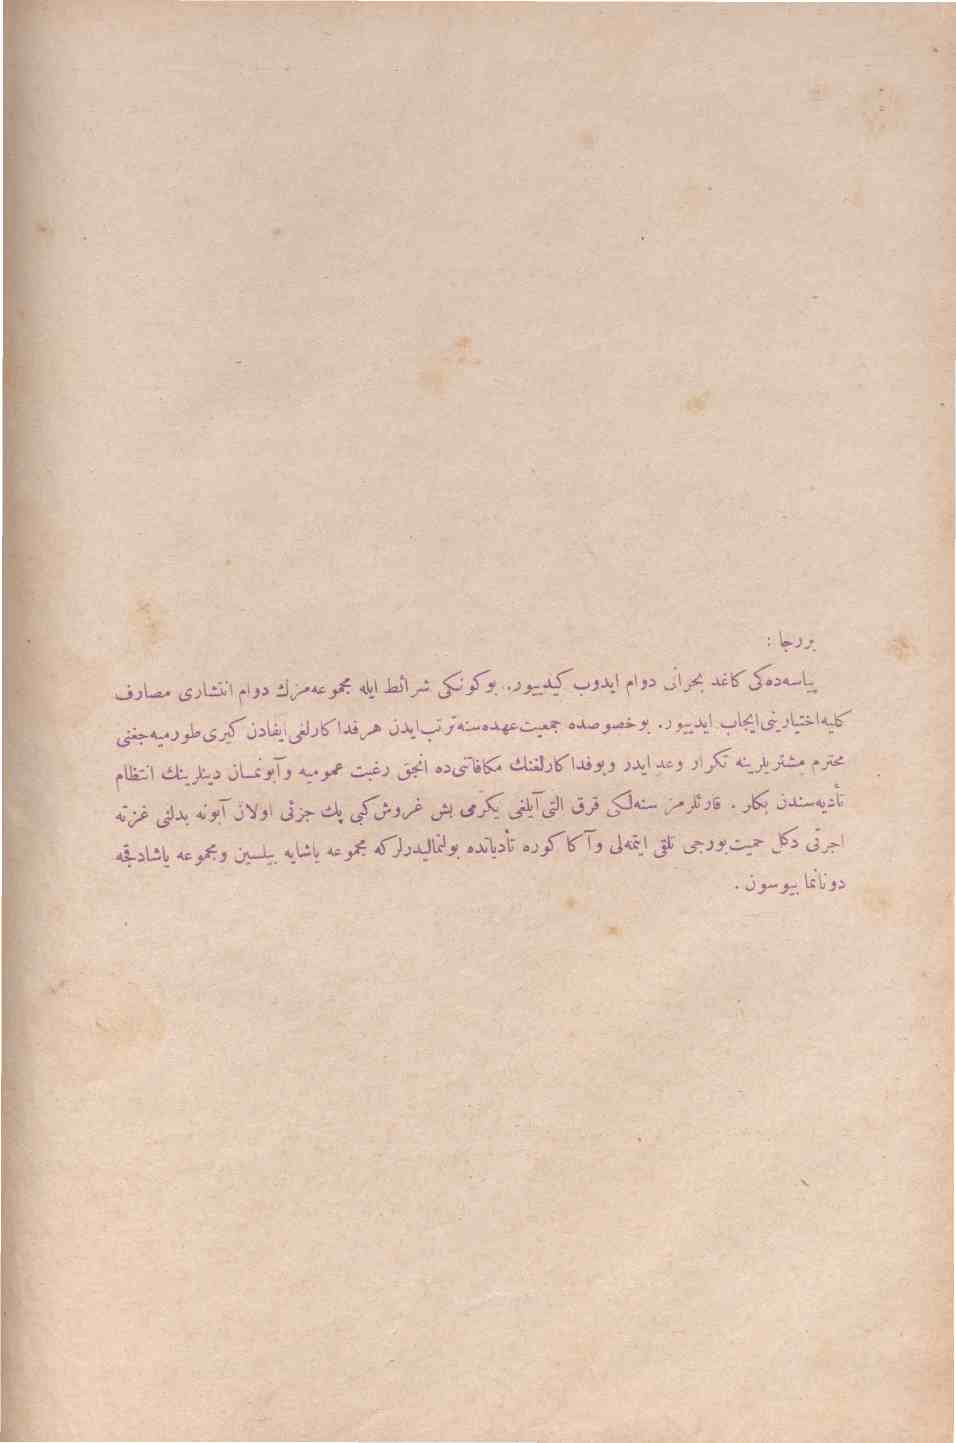 بر رجا :
پیاسه‌ده‌کی کاغد بحرانی دوام ایدوب کیدییور. بوکونکی شرائط ایله مجموعه‌مزك دوام انتشاری مصارف
کلیه اختیارینی ایجاب ایدییور. بو خصوصده جمعیت عهده‌سنه ترتب ایدن هر فداکارلغی ایفادن کیری طورمیه‌جغنی
محترم مشتریلرینه تکرار وعد ایدر و بو فداکارلغنك مکافاتنی‌ده انجق رغبت عمومیه و آبونمان دینلرینك انتظام
تأدیه‌سندن بکلر . قارئلرمز سنه‌لکی قرق التی آیلغی یکرمی بش غروش کبی پك جزئی اولان آبونه بدلنی غزته
اجرتی دکل حمیت بورجی تلقی ایتمه‌لی و آکا کوره تأدیاتده بولنمالیدرلر که مجموعه یاشایه بیلسین و مجموعه یاشادقجه
دونانما بیوسون .